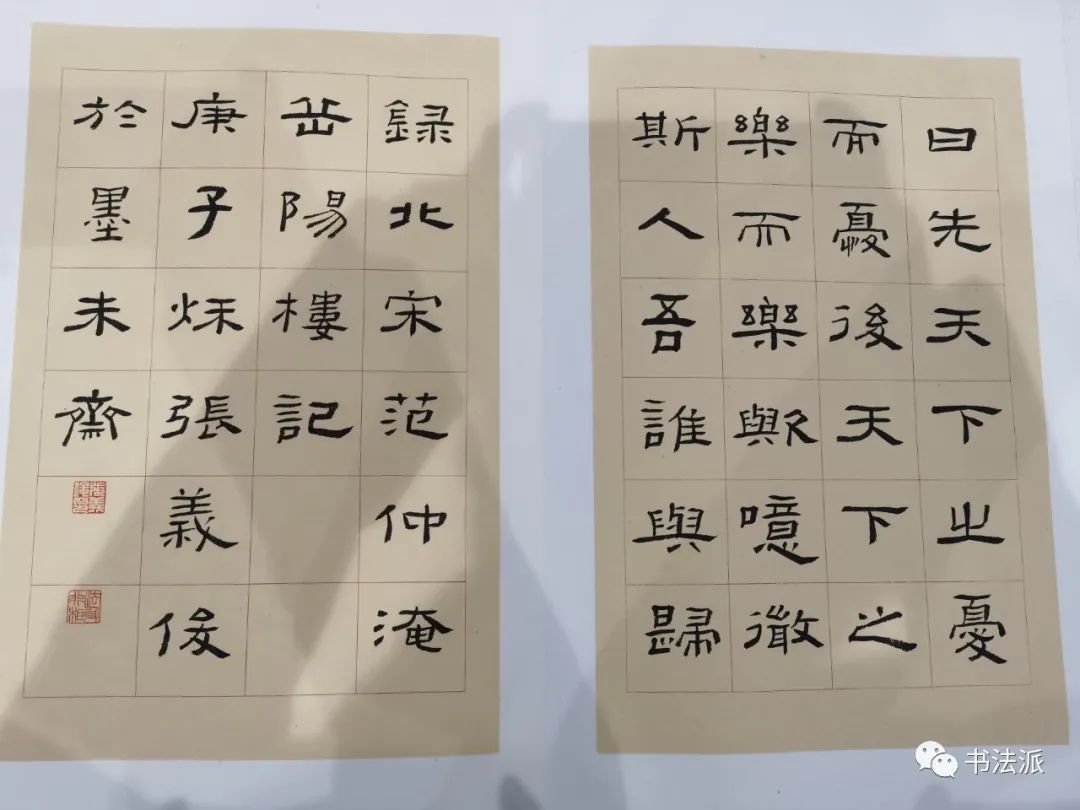 曰先天下之憂
而憂後天下之
樂而樂歟噫微
斯人吾誰與歸
録北宋范仲淹
岳陽樓記
庚子秌張義俊
於墨未齋
书法派